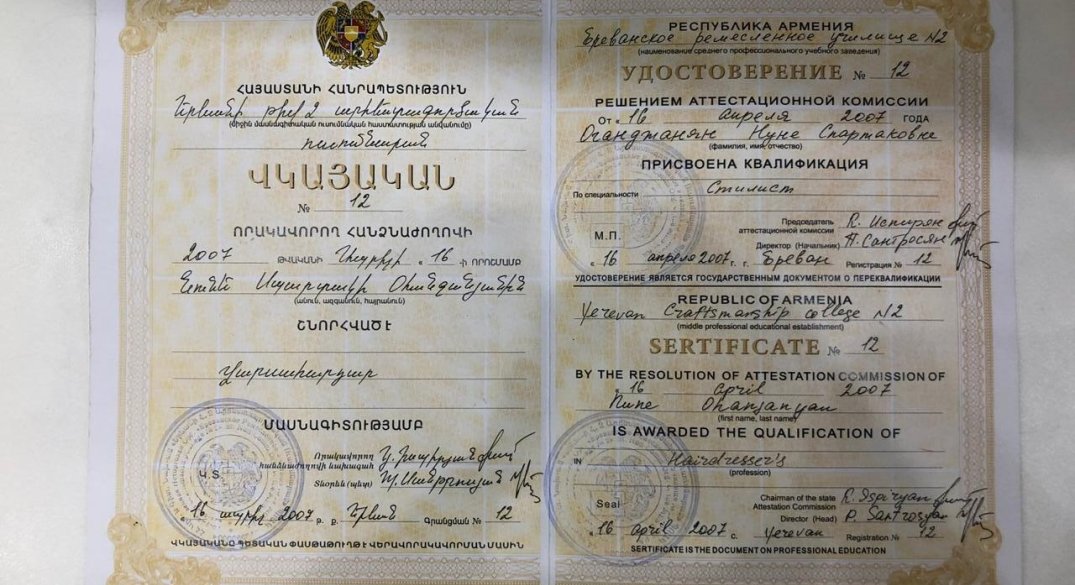 ՀԱՅԱՍՏԱՆԻ ՀԱՆՐԱՊԵՏՈՒԹՅՈՒՆ
Երևանի թիվ 2 արհեստագործական
(միջին մասնագիտական ուսումնական հաստատության անվանումը)
ուսումնարան
ՎԿԱՅԱԿԱՆ
№ 12
ՈՐԱԿԱՎՈՐՈՂ ՀԱՆՁՆԱԺՈՂՈՎԻ
2007 ԹՎԱԿԱՆԻ Ապրիլի « 16 -Ի ՈՐՈՇՄԱՄԲ
Նունե Սպարտակի Օհանջանյանին
(անուն, ազգանուն, հայրանուն)
ՇՆՈՐՀՎԱԾ Է
վարսահարդար
ՄԱՍՆԱԳԻՏՈՒԹՅԱՄԲ
Որակավորող
հանձնաժողովի նախագահ
Կ.Տ.
Տնօրեն (պետ)
16 ապրիլ 2007 թ. ք. Երևան Գրանցման № 12
ՎԿԱՅԱԿԱՆԸ ՊԵՏԱԿԱՆ ՓԱՍՏԱԹՈՒՂԹ Է ՎԵՐԱՎՈՐԱԿԱՎՈՐՄԱՆ ՄԱՍԻՆ
РЕСПУБЛИКА АРМЕНИЯ
Ереванское ремесленное училище N2
(наименование среднего профессионального учебного заведения)
УДОСТОВЕРЕНИЕ № 12
РЕШЕНИЕМ АТТЕСТАЦИОННОЙ КОМИССИИ
От « 16 апреля 2007 ГОДА
Оганджанян Нуне Спартаковне
(фамилия, имя, отчество)
ПРИСВОЕНА КВАЛИФИКАЦИЯ
По специальности Стилист
Председатель
аттестационной комиссии R. Испирян
М.П.
Директор (Начальник) П. Сантросян
« 16 апреля 2007 г. г. Ереван Регистрация № 12
УДОСТОВЕРЕНИЕ ЯВЛЯЕТСЯ ГОСУДАРСТВЕННЫМ ДОКУМЕНТОМ О ПЕРЕКВАЛИФИКАЦИИ
REPUBLIC OF ARMENIA
Yerevan Craftsmanship college N2
(middle professional educational establishment)
SERTIFICATE № 12
BY THE RESOLUTION OF ATTESTATION COMMISSION OF
« 16 april 2007
Nune Ohanjanyan
(first name, last name)
IS AWARDED THE QUALIFICATION OF
IN Hairdresser's
(profession)
Chairman of the state
Attestation Commission R. Ispiryan
Seal
Director (Head) P. Santrosyan
« 16 april 2007 c. Yerevan Registration № 12
SERTIFICATE IS THE DOCUMENT ON PROFESSIONAL EDUCATION